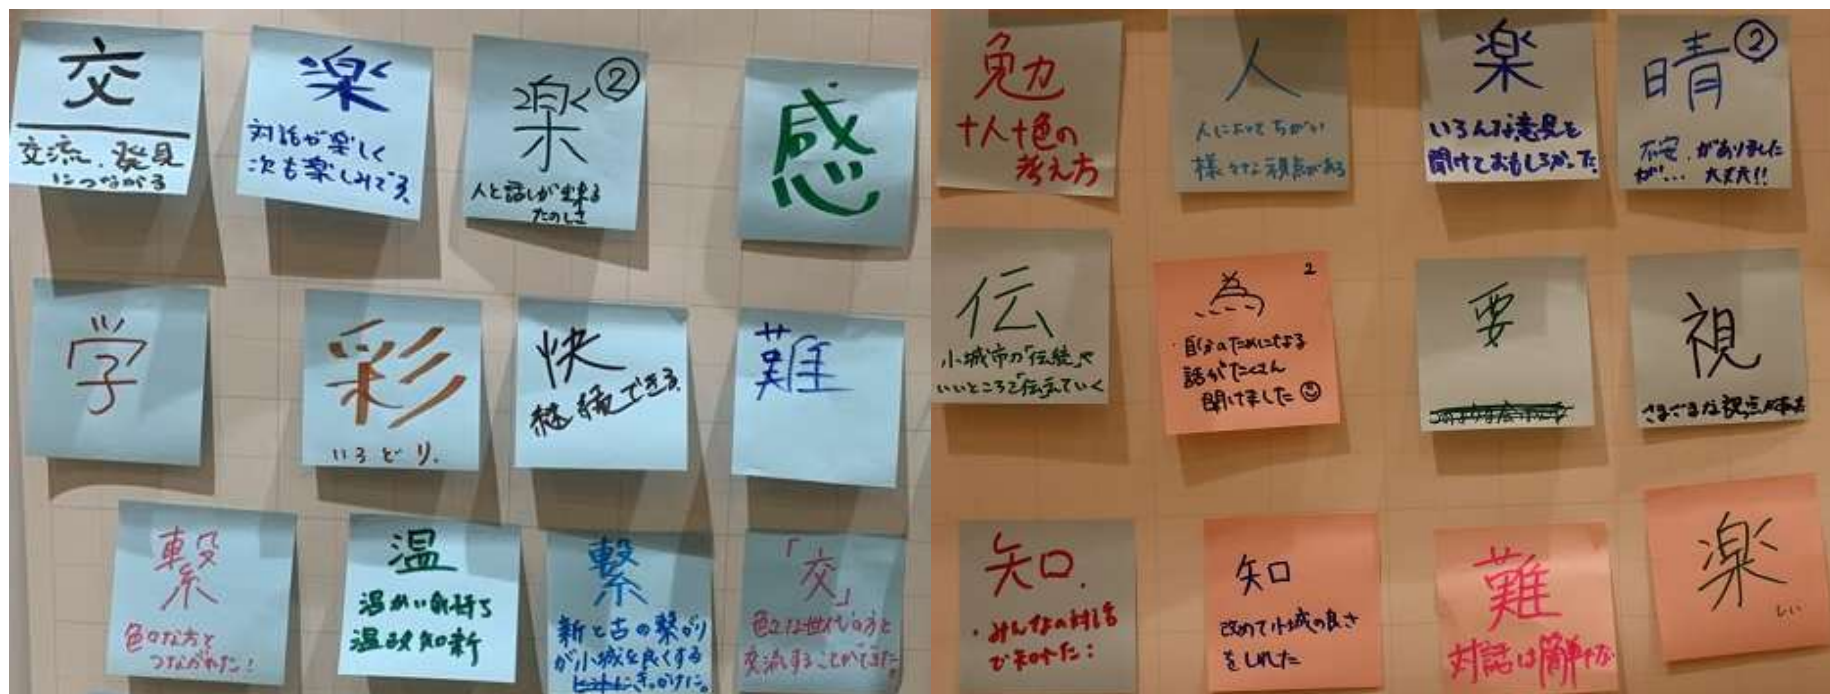 交
交流、発見
につながる
楽
対話が楽しく
次も楽しみです。
楽②
人と話しが出来る
たのしさ
感
学
彩
いろどり。
快
継続できる。
難
繋
色々な方と
つながれた!
温
温かい気持ち
温故知新
繋
新と古の繋がり
が小城を良くする
きっかけに。
「交」
色々な世代の方と
交流することができた
勉
十人十色の
考え方
人
人によってちがい
様々な視点がある
楽
いろんな意見を
聞けておもしろかった
晴②
不安、がありました
が... 大丈夫!!
伝
小城市の「伝統」や
いいところを「伝えていく
為
2
・自分のためになる
話がたくさん
聞けました☺
要
視
さまざまな視点
知.
・みんなの対話
で知れた!
知
改めて小城の良さ
をしれた
難
対話は
楽
しい